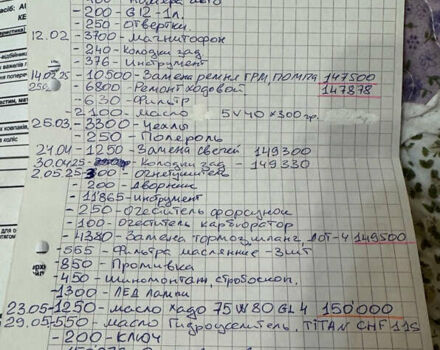 -200-G12-1л.
-250-отвертки.
12.02-3700-Магнитофон
-240-колодки зад.
-376-Инструмент
14.02.25-10500-Замена ремня ГРМ, ПОМПА 147500
-6800-Ремонт ходовой 147878
-630-Фильтр
-2100-масло 5V40×300гр.
25.03.-3300-Чехлы
-250-Полероль
21.04-1250-Замена свечей 149300
30.04.25- -Колодки зад -149330
2.05.25-300-огнетушитель
-200-Дворник
-11865-инструмент
-250-очеститель форсунок
-100-очеститель карбюратор
-4380-Замена тормоз, шланг, ДОТ-4 149500
-555-Фильтра маслянные-3шт
-850-Промывка
-450-шиномонтаж, стробоскоп,
-1300-ЛЕД лампы
23.05-1250-масло Хадо 75W80 GL4 150'000
29.05-550-масло Гидроуселитель, TITAN CHF 11S
-200-КЛЮЧ